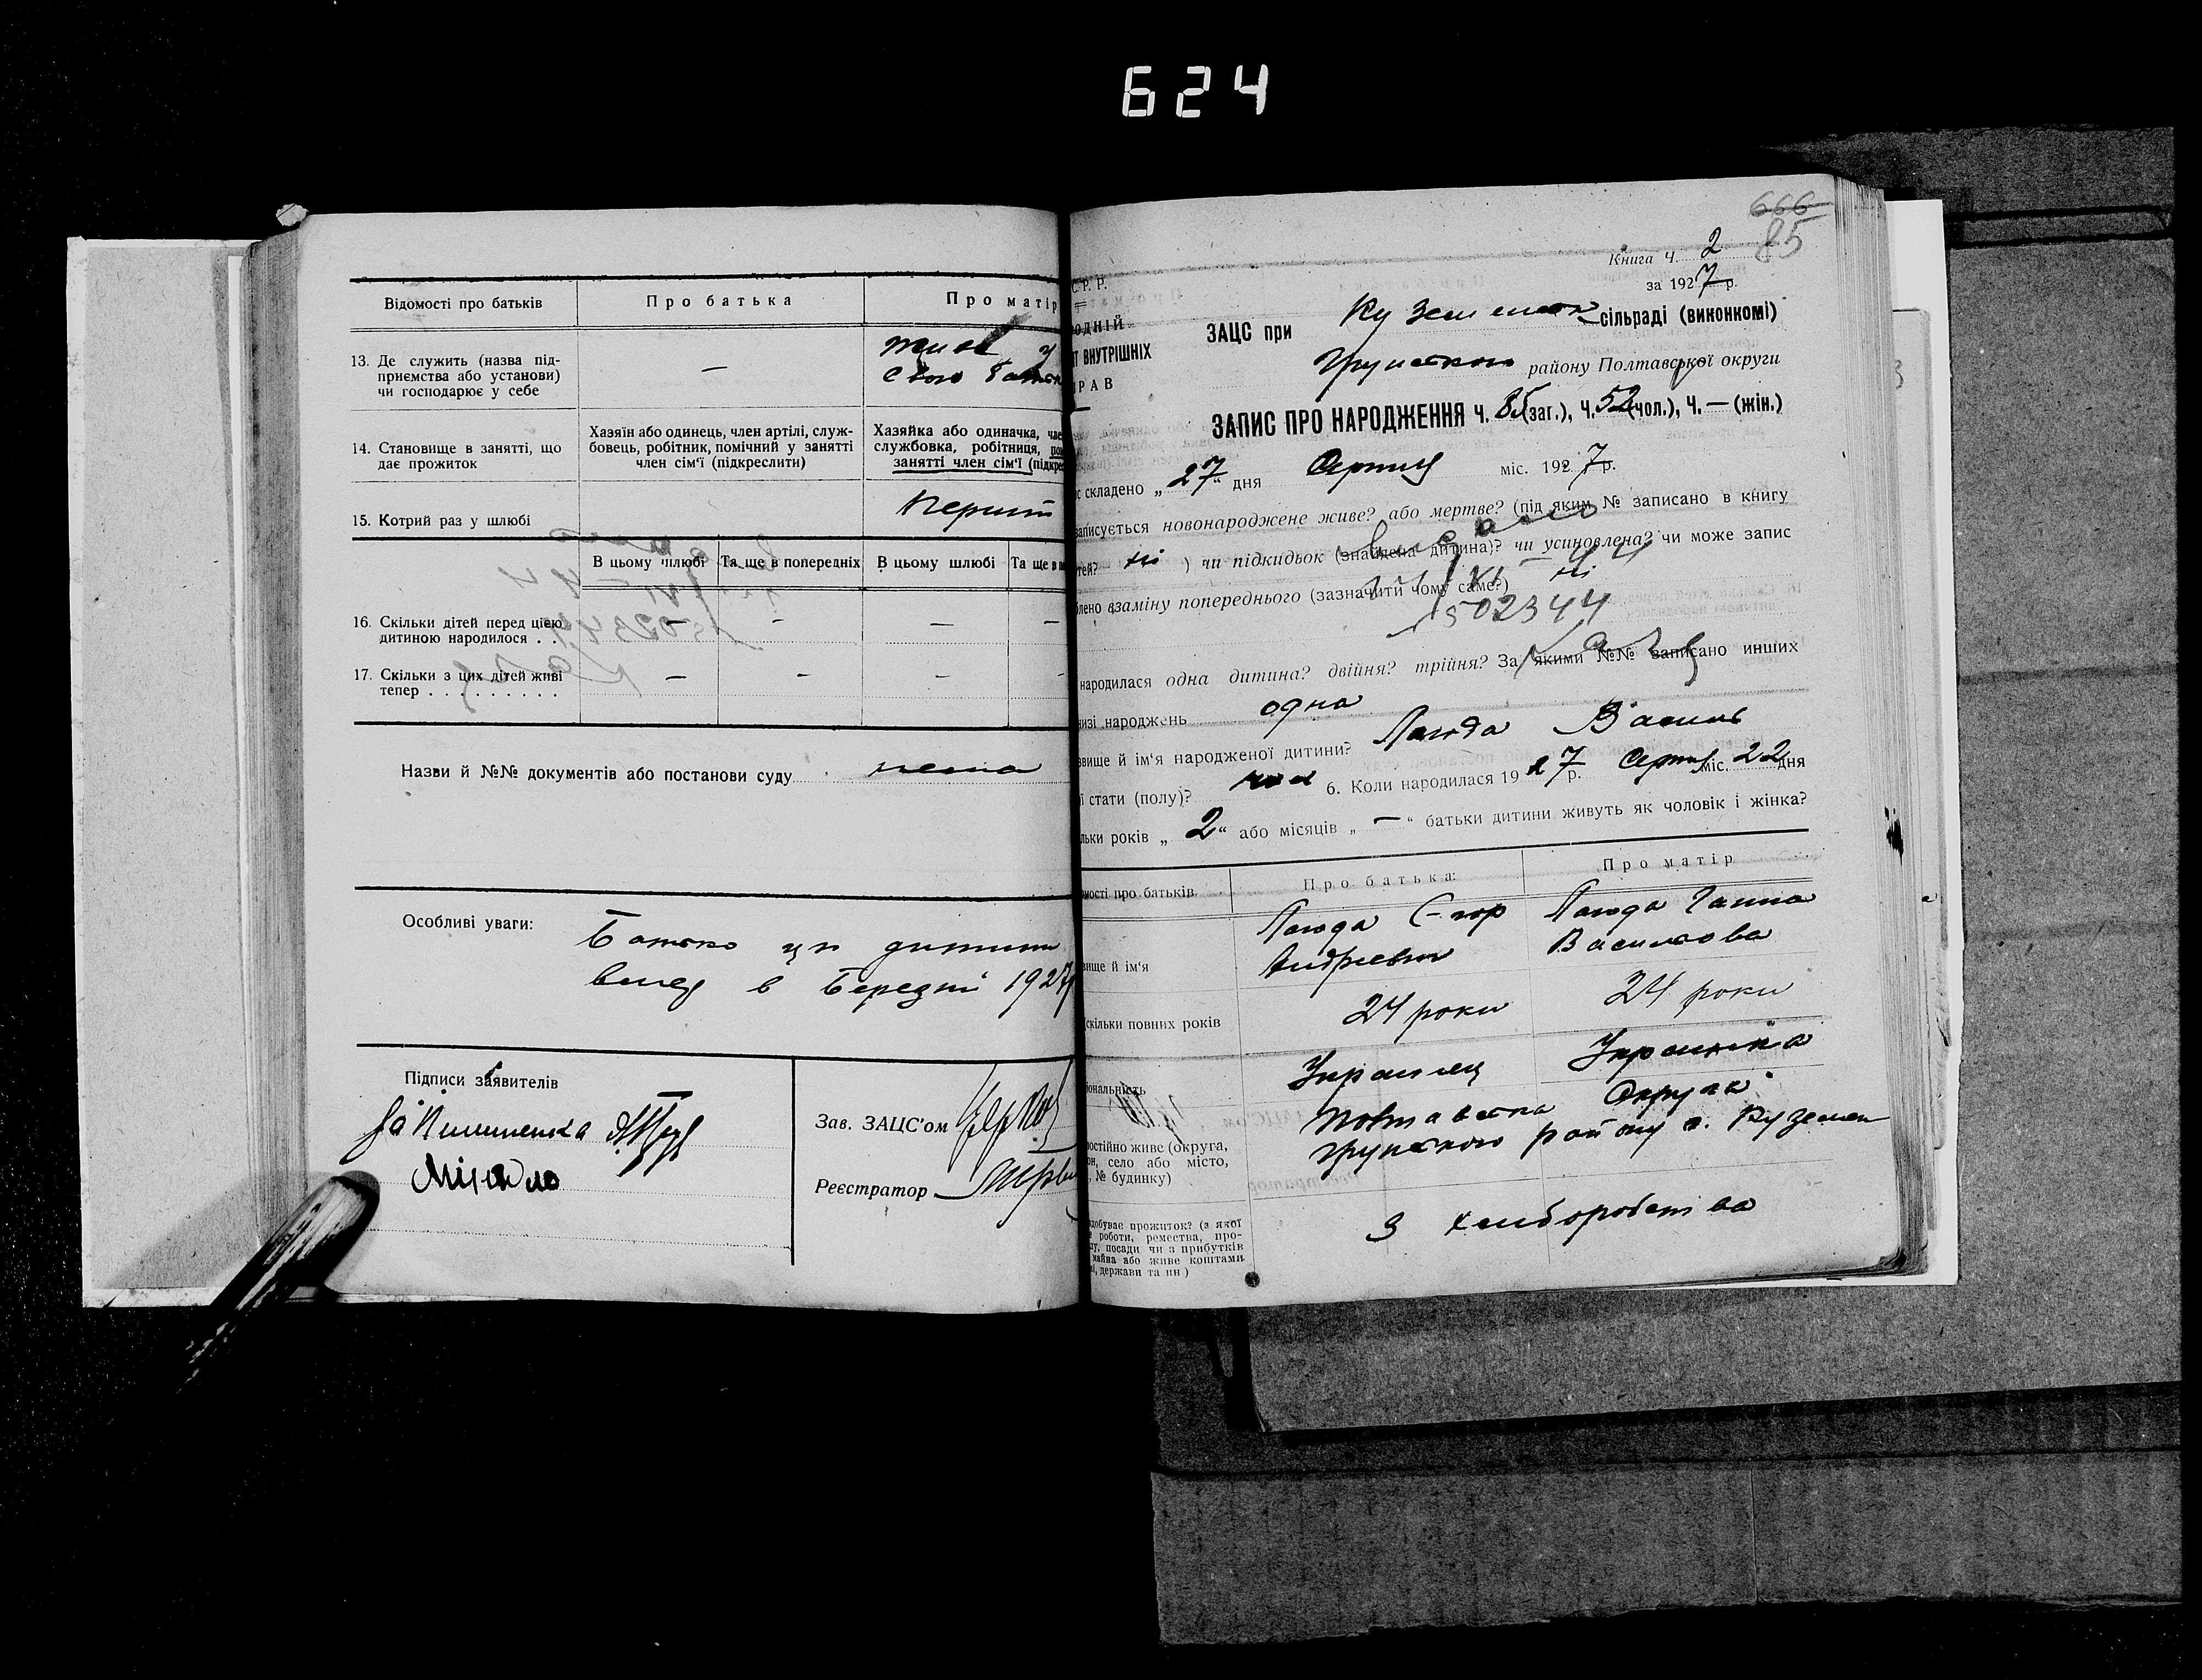 624
Відомості про батьків
Про батька
Про матір
13. Де служить (назва під-
приємства або установи)
чи господарює у себе
—
Живе у
свого батьк
14. Становище в занятті, що
дає прожиток
Хазяїн або одинець, член артілі, служ-
бовець, робітник, помічний у занятті
член сім'ї (підкреслити)
Хазяйка або одиначка, чле
службовка, робітниця, пом
занятті член сім'ї (підкре
15. Котрий раз у шлюбі
В цьому шлюбі
Та ще в попередніх
В цьому шлюбі
Та ще в п
16. Скільки дітей перед цією
дитиною народилося . .
— — — —
17. Скільки з цих дітей живі
тепер . . . . . . . . .
— — — —
Назви й №№ документів або постанови суду нема
Особливі уваги:
Батько ци дитини
вмер в Березні 1927
Підписи заявителів
Зав. ЗАЦС'ом
Реєстратор
666
85
Книга Ч. 2
за 1927 р.
С.Р.Р.
ОДНІЙ
Т ВНУТРІШНІХ
РАВ
ЗАЦС при Куземенск сільраді (виконкомі)
Грунського району Полтавської округи
ЗАПИС ПРО НАРОДЖЕННЯ Ч. 85 (заг.), Ч. 52 (чол.), Ч. — (жін.)
с складено „27“ дня Серпня міс. 1927 р.
записується новонароджене живе? або мертве? (під яким № записано в книгу
тей? ні ) чи підкидьок (знайдена дитина)? чи усиновлена? чи може запис
ні
блено взаміну попереднього (зазначити чому саме?)
502344
народилася одна дитина? двійня? трійня? За якими №№ записано инших
низі народжень одна
звище й ім'я народженої дитини? Лагода Василь
ї стати (полу)? чол 6. Коли народилася 1927 р. Серпня міс. 22 дня
льки років „2“ або місяців „—“ батьки дитини живуть як чоловік і жінка?
омості про батьків
Про батька:
Про матір
вище й ім'я
Лагода Єгор
Андрієвич
Лагода Ганна
Василівна
скільки повних років
24 роки
24 роки
іональність
Украинец
Украінка
постійно живе (округа,
он, село або місто,
, № будинку)
Полтавська Округа
Грунського району с. Куземен
здобуває прожиток? (з якої
е роботи, ремества, про-
лу, посади чи з прибутків
майна або живе коштами
і, держави та ин)
З хліборобства